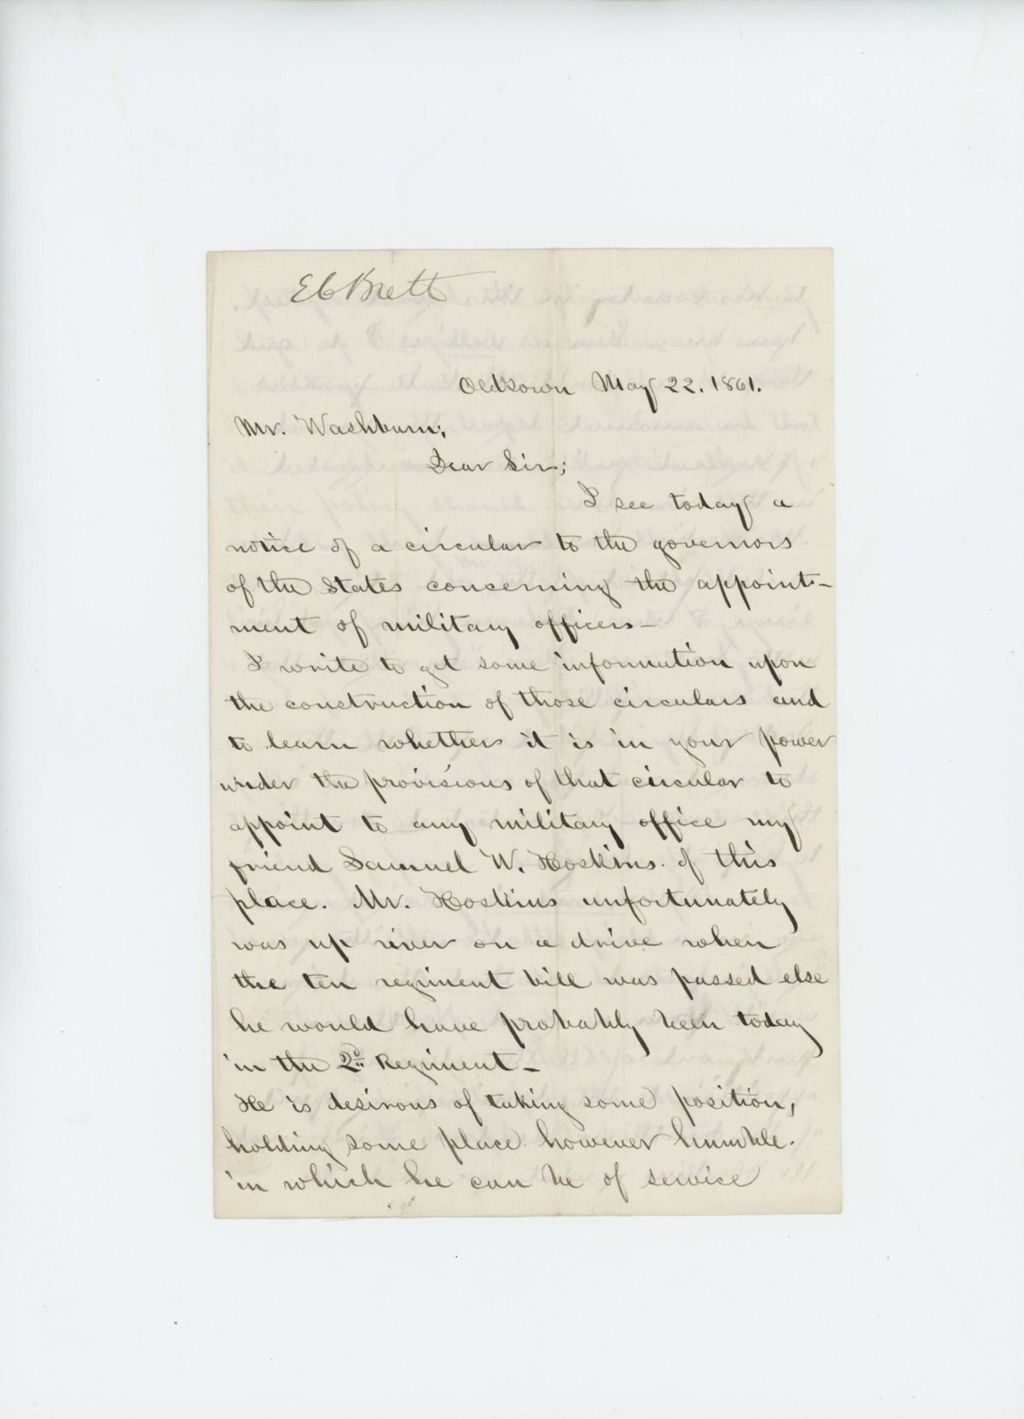 E C Brett
Oldtown May 22. 1861.
Mr. Washburn;
Dear Sir;
I see today a
notice of a circular to the governors
of the States concerning the appoint-
ment of military officers-
I write to get some information upon
the construction of those circulars and
to learn whether it is in your power
under the provisions of that circular to
appoint to any military office my
friend Samuel W. Hoskins. of this
place. Mr. Hoskins unfortunately
was up river on a drive when
the ten regiment bill was passed else
he would have probably been today
in the 2d Regiment-
He is desirous of taking some position,
holding some place however humble.
in which he can be of service